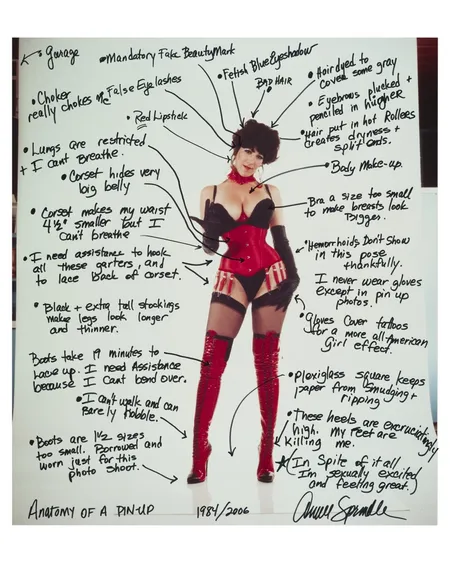 Garage
• Mandatory Fake BeautyMark
• Fetish Blue Eyeshadow
• BAD HAIR
• Hair dyed to
cover some gray
• Choker
really chokes me
• False Eyelashes
• Red Lipstick
• Eyebrows plucked +
penciled in higher
• Hair put in hot Rollers
creates dryness +
split ends.
• Lungs are restricted
+ I cant Breathe.
• Body Make-up.
• Corset hides very
big belly
• Bra a size too small
to make breasts look
bigger.
• Corset makes my waist
4½" smaller but I
can't breathe
• Hemorrhoids Don't Show
in this pose
thankfully.
• I need assistance to hook
all these garters, and
to lace back of corset.
I never wear gloves
except in pin up
photos.
• Black + extra tall stockings
make legs look longer
and thinner.
• Gloves cover tattoos
for a more all-American
girl effect.
Boots take 19 minutes to
lace up. I need Assistance
because I cant bend over.
• Plexiglass square keeps
paper from smudging +
ripping
• I can't walk and can
barely hobble.
• These heels are excruciatingly
high. My feet are
killing me.
• Boots are 1½ sizes
too small. Borrowed and
worn just for this
photo shoot.
(In Spite of it all
I'm sexually excited
and feeling great.)
ANATOMY OF A PIN-UP
1984/2006
Annie Sprinkle